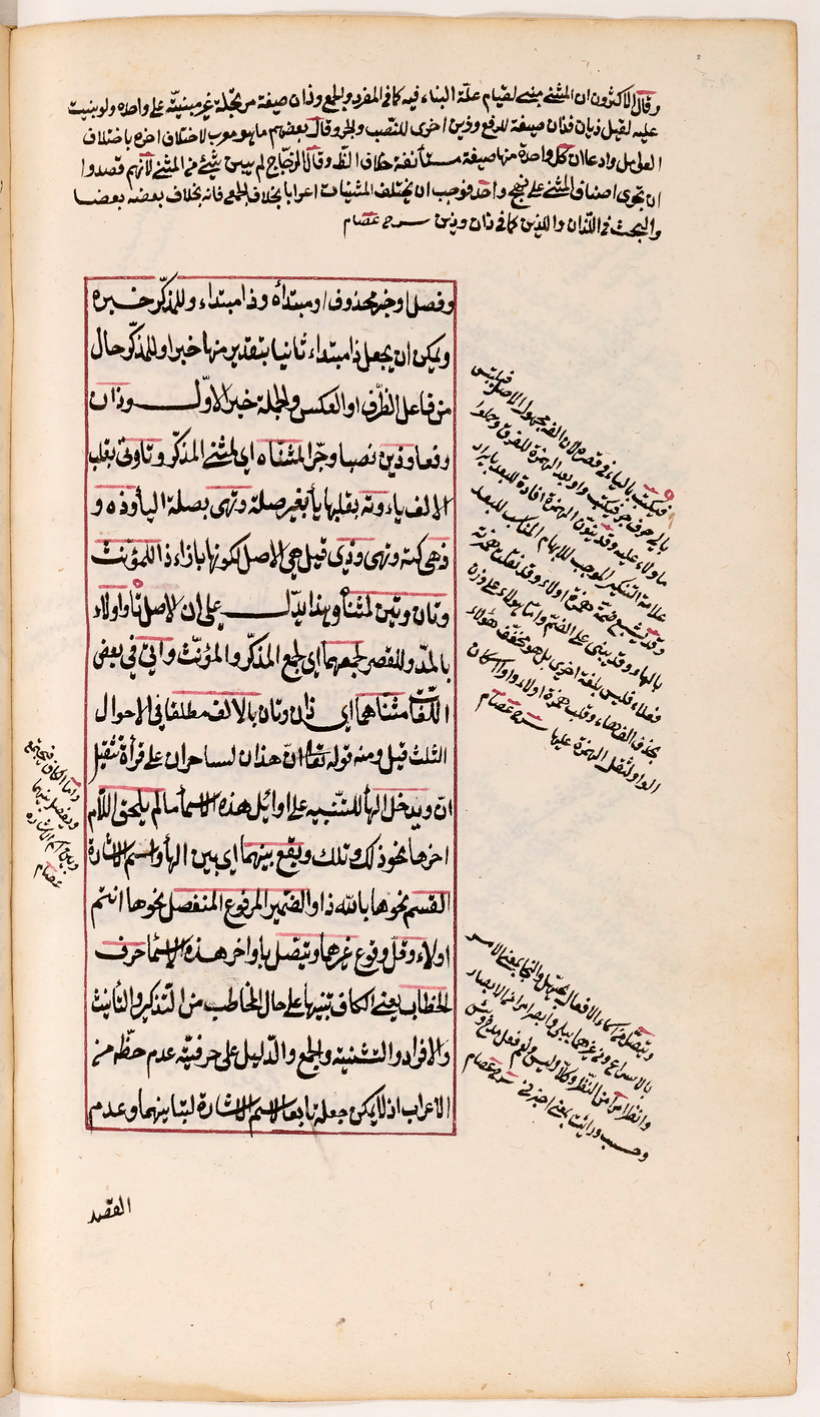 وقال الاكثرون ان المثنى مبنى لقيام علّة البناء فيه كما فى المفرد والجمع وذان صيغة مرتجلة غير مبنيّة على واحده ولو بنيت
عليه لقيل ذيان فذان صيغة للرفع وذين اخرى للنصب والجر وقال بعضهم ما هو معرب لاختلاف اخره باختلاف
العوامل وادعا ان كل واحدة منها صيغة مستأنفة خلاف الظ وقال الزجّاج لم يبين شئ من المثنى لانهم قصدوا
ان تجرى اصناف المثنى على نهج واحد فوجب ان يختلف المثنيات اعرابا بخلاف الجمع فانه يخلاف بعضه بعضا
والبحث فى اللذان واللذين كما فى ذان وذين شرح عصام
وفصل او خبر محذوف او مبتدأه وذا مبتداء وللمذكّر خبره
ويمكن ان يجعل ذا مبتداء ثانيا بتقدير منها خبرا وللمذكّر حال
من فاعل الظرف او العكس والجملة خبر الاوّل وذان
رفعا وذين نصبا وجرّا لمثنّاه اى لمثنى المذكّر وتا وتى بقلب
الالف ياء وته بقلبها يأ بغير صلة وتهى بصلة اليأ وذه و
ذهى كته وتهى وذى قيل هى الاصل لكونها بازاء ذا للمؤنث
وتان وتين لمثنأ وبهذا يدّل على ان الاصل تا واولاء
بالمدّ والقصر لجمعهما اى لجمع المذكّر والمؤنّث واتى فى بعض
اللغات مثنّاهما اى ذان وتان بالالف مطلقا فى الاحوال
الثلث قيل ومنه قوله تعا انّ هذان لساحران على قرأة تثقيل
انّ ويدخل الهأ للتّنبيه على اوائل هذه الاسمأ ما لم يلحق اللّام
اخرها نحو ذلك وتلك ويقع بينهما اى بين الهأ واسم الاشارة
القسم نحو ها بالله ذا والضّمير المرفوع المنفصل نحو ها انتم
اولاء وقلّ وقوع غيرها ويتصّل باواخر هذه الاسما حرف
الخطاب يعنى الكاف تنبيها على حال المخاطب من التذكير والتأنيث
والافراد والتثنية والجمع والدّليل على حرفيّته عدم حظّه من
الاعراب اذ لا يمكن جعله تابعا لاسم الاشارة لتباينهما وعدم
القصد
فيكتب بالياء فى قصره لان الفه مجهول الاصل
ما ولاء عليه وقد ينوّن الهمزة افادة للبعد بايراد
علامة التنكير الموجب للابهام المناسب للبعد
وقد يشبع ضمّة همزة اولاء وقد تقلب همزته
بالهاء وقد يبنى على الضم وامّا هولاء على وزن
فعلاء فليس بلغة اخرى بل هو مخفف هؤلاء
بحذف الف ها وقلب همزة اولاء واوا
الواو لثقل الهمزة عليها شرح عصام
وحسب ورايت بمعنى اخبرنى شرح عصام
عصام